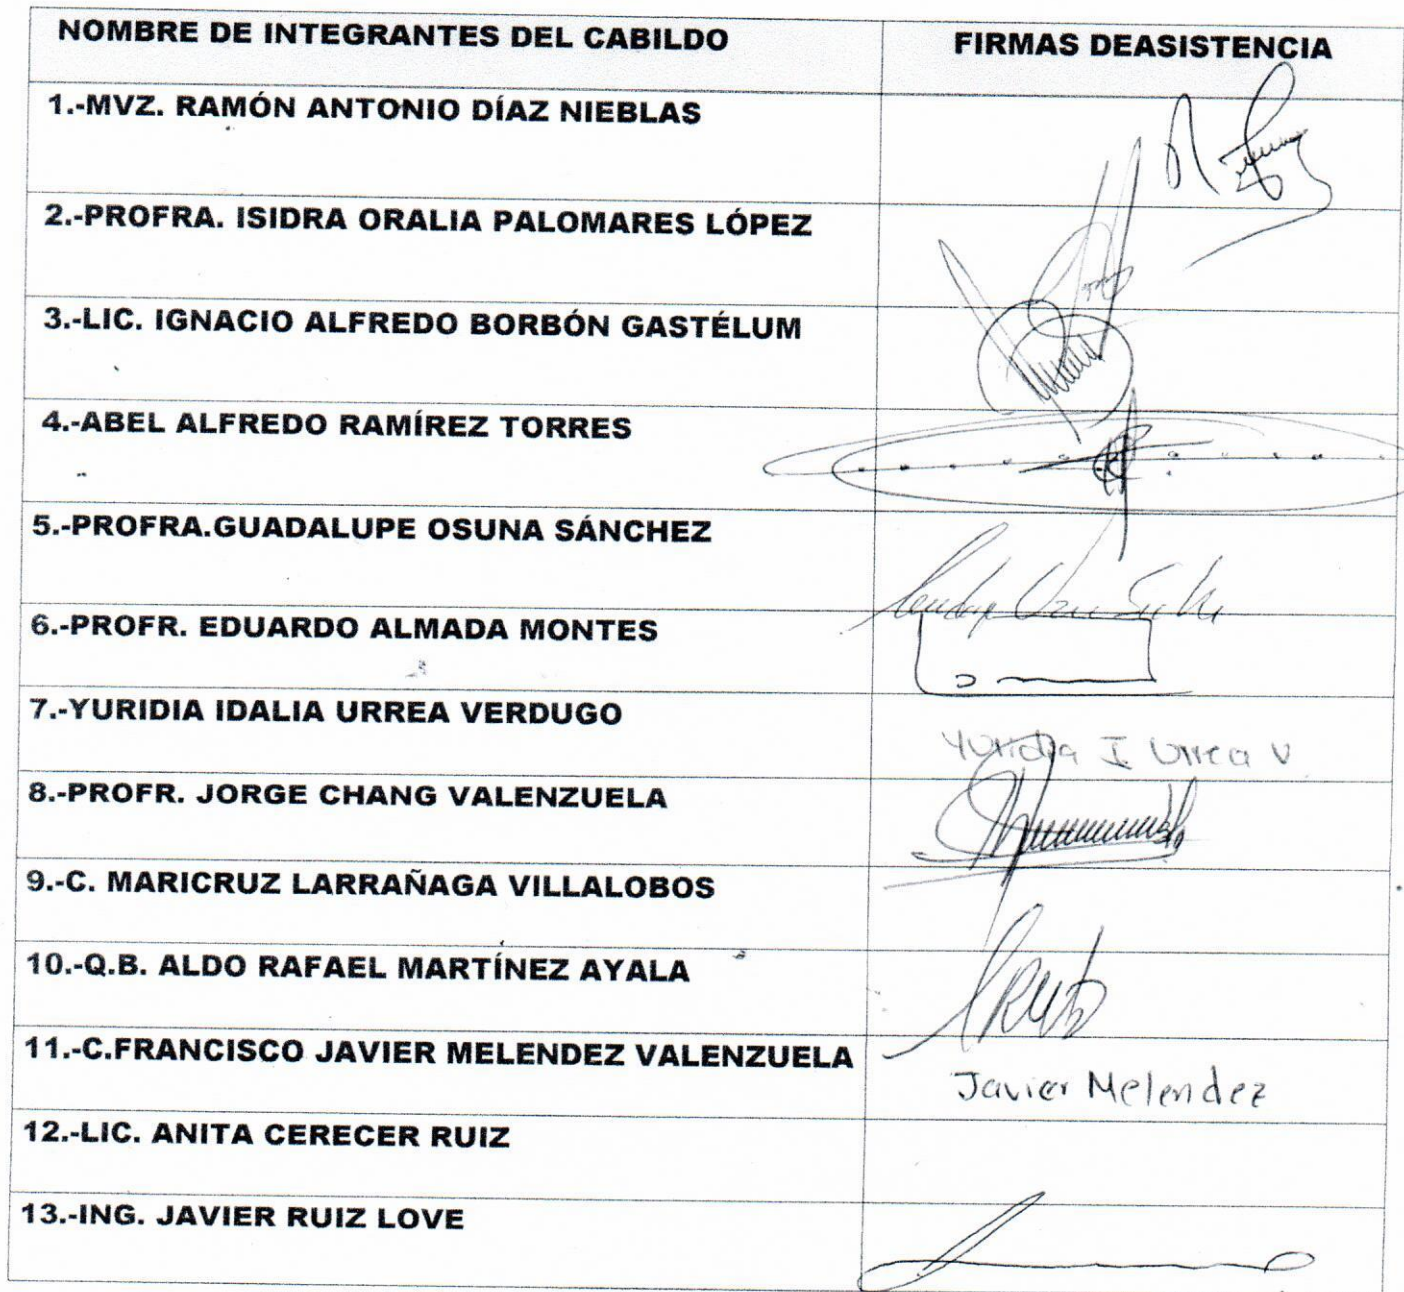 NOMBRE DE INTEGRANTES DEL CABILDO
FIRMAS DEASISTENCIA
1.-MVZ. RAMÓN ANTONIO DÍAZ NIEBLAS
2.-PROFRA. ISIDRA ORALIA PALOMARES LÓPEZ
3.-LIC. IGNACIO ALFREDO BORBÓN GASTÉLUM
4.-ABEL ALFREDO RAMÍREZ TORRES
5.-PROFRA.GUADALUPE OSUNA SÁNCHEZ
6.-PROFR. EDUARDO ALMADA MONTES
7.-YURIDIA IDALIA URREA VERDUGO
Yuridia I Urrea V.
8.-PROFR. JORGE CHANG VALENZUELA
9.-C. MARICRUZ LARRAÑAGA VILLALOBOS
10.-Q.B. ALDO RAFAEL MARTÍNEZ AYALA
11.-C.FRANCISCO JAVIER MELENDEZ VALENZUELA
Javier Melendez
12.-LIC. ANITA CERECER RUIZ
13.-ING. JAVIER RUIZ LOVE